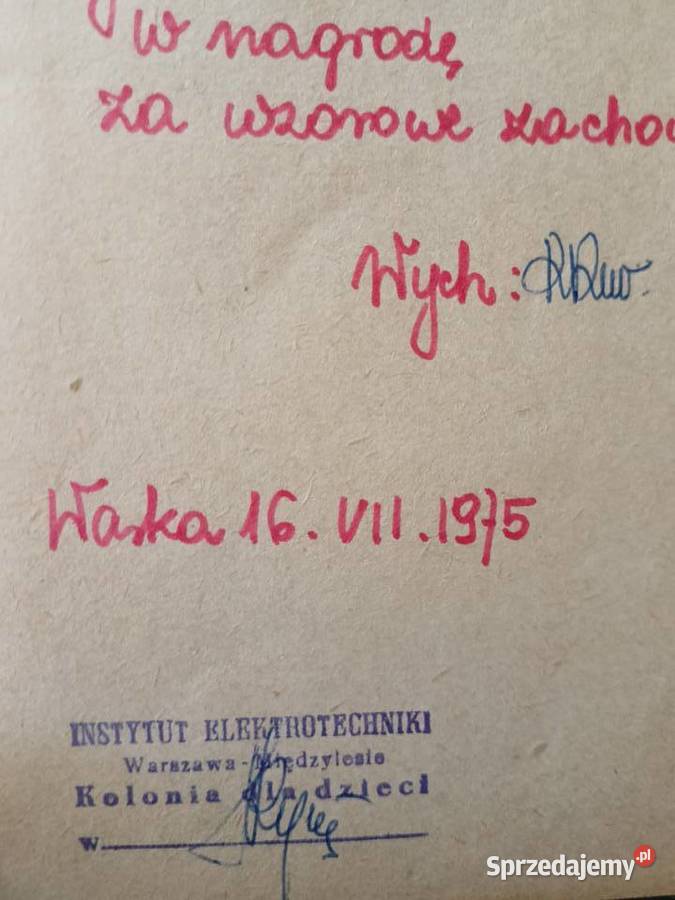 w nagrodę
za wzorowe zacho
Wych:
Waska 16. VII. 1975
INSTYTUT ELEKTROTECHNIKI
Warszawa-Międzylesie
Kolonia dla dzieci
w
Sprzedajemy.pl